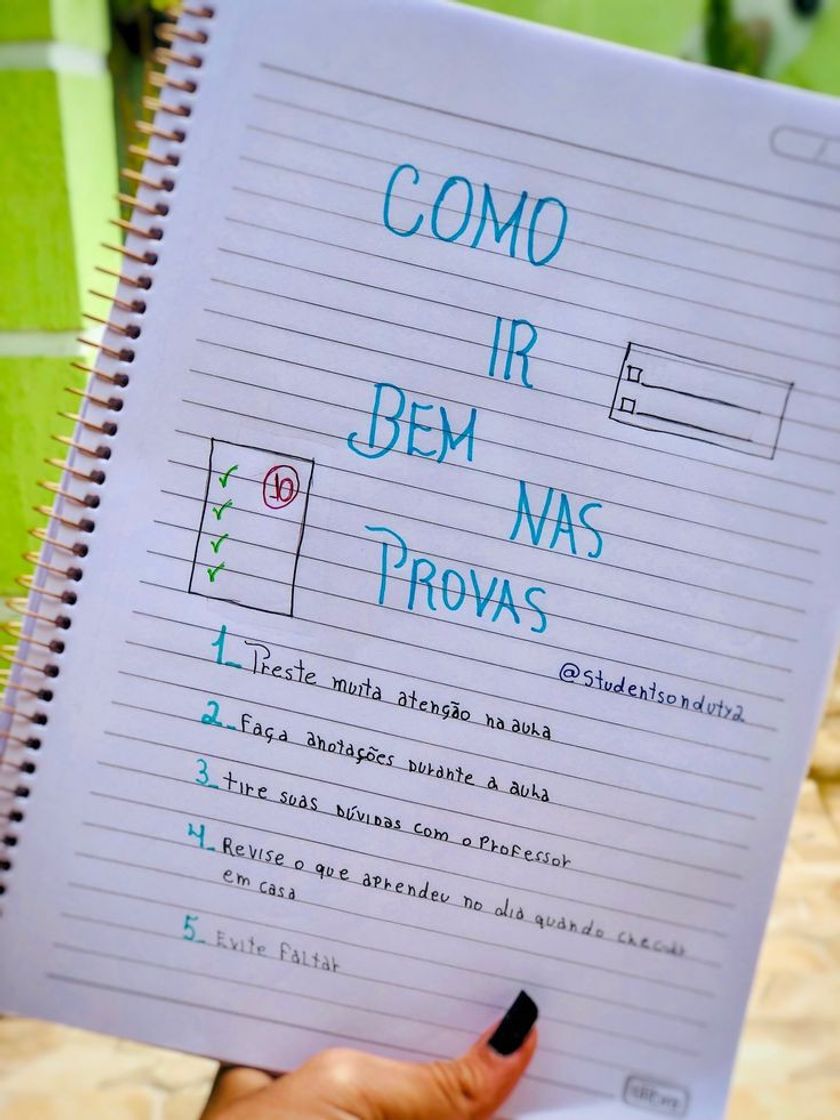 COMO
IR
BEM
NAS
PROVAS
10
@studentsonduty2
1_ Preste muita atenção na aula
2_ Faça anotações durante a aula
3_ tire suas dúvidas com o Professor
4_ Revise o que aprendeu no dia quando chegar
em casa
5_ Evite faltar